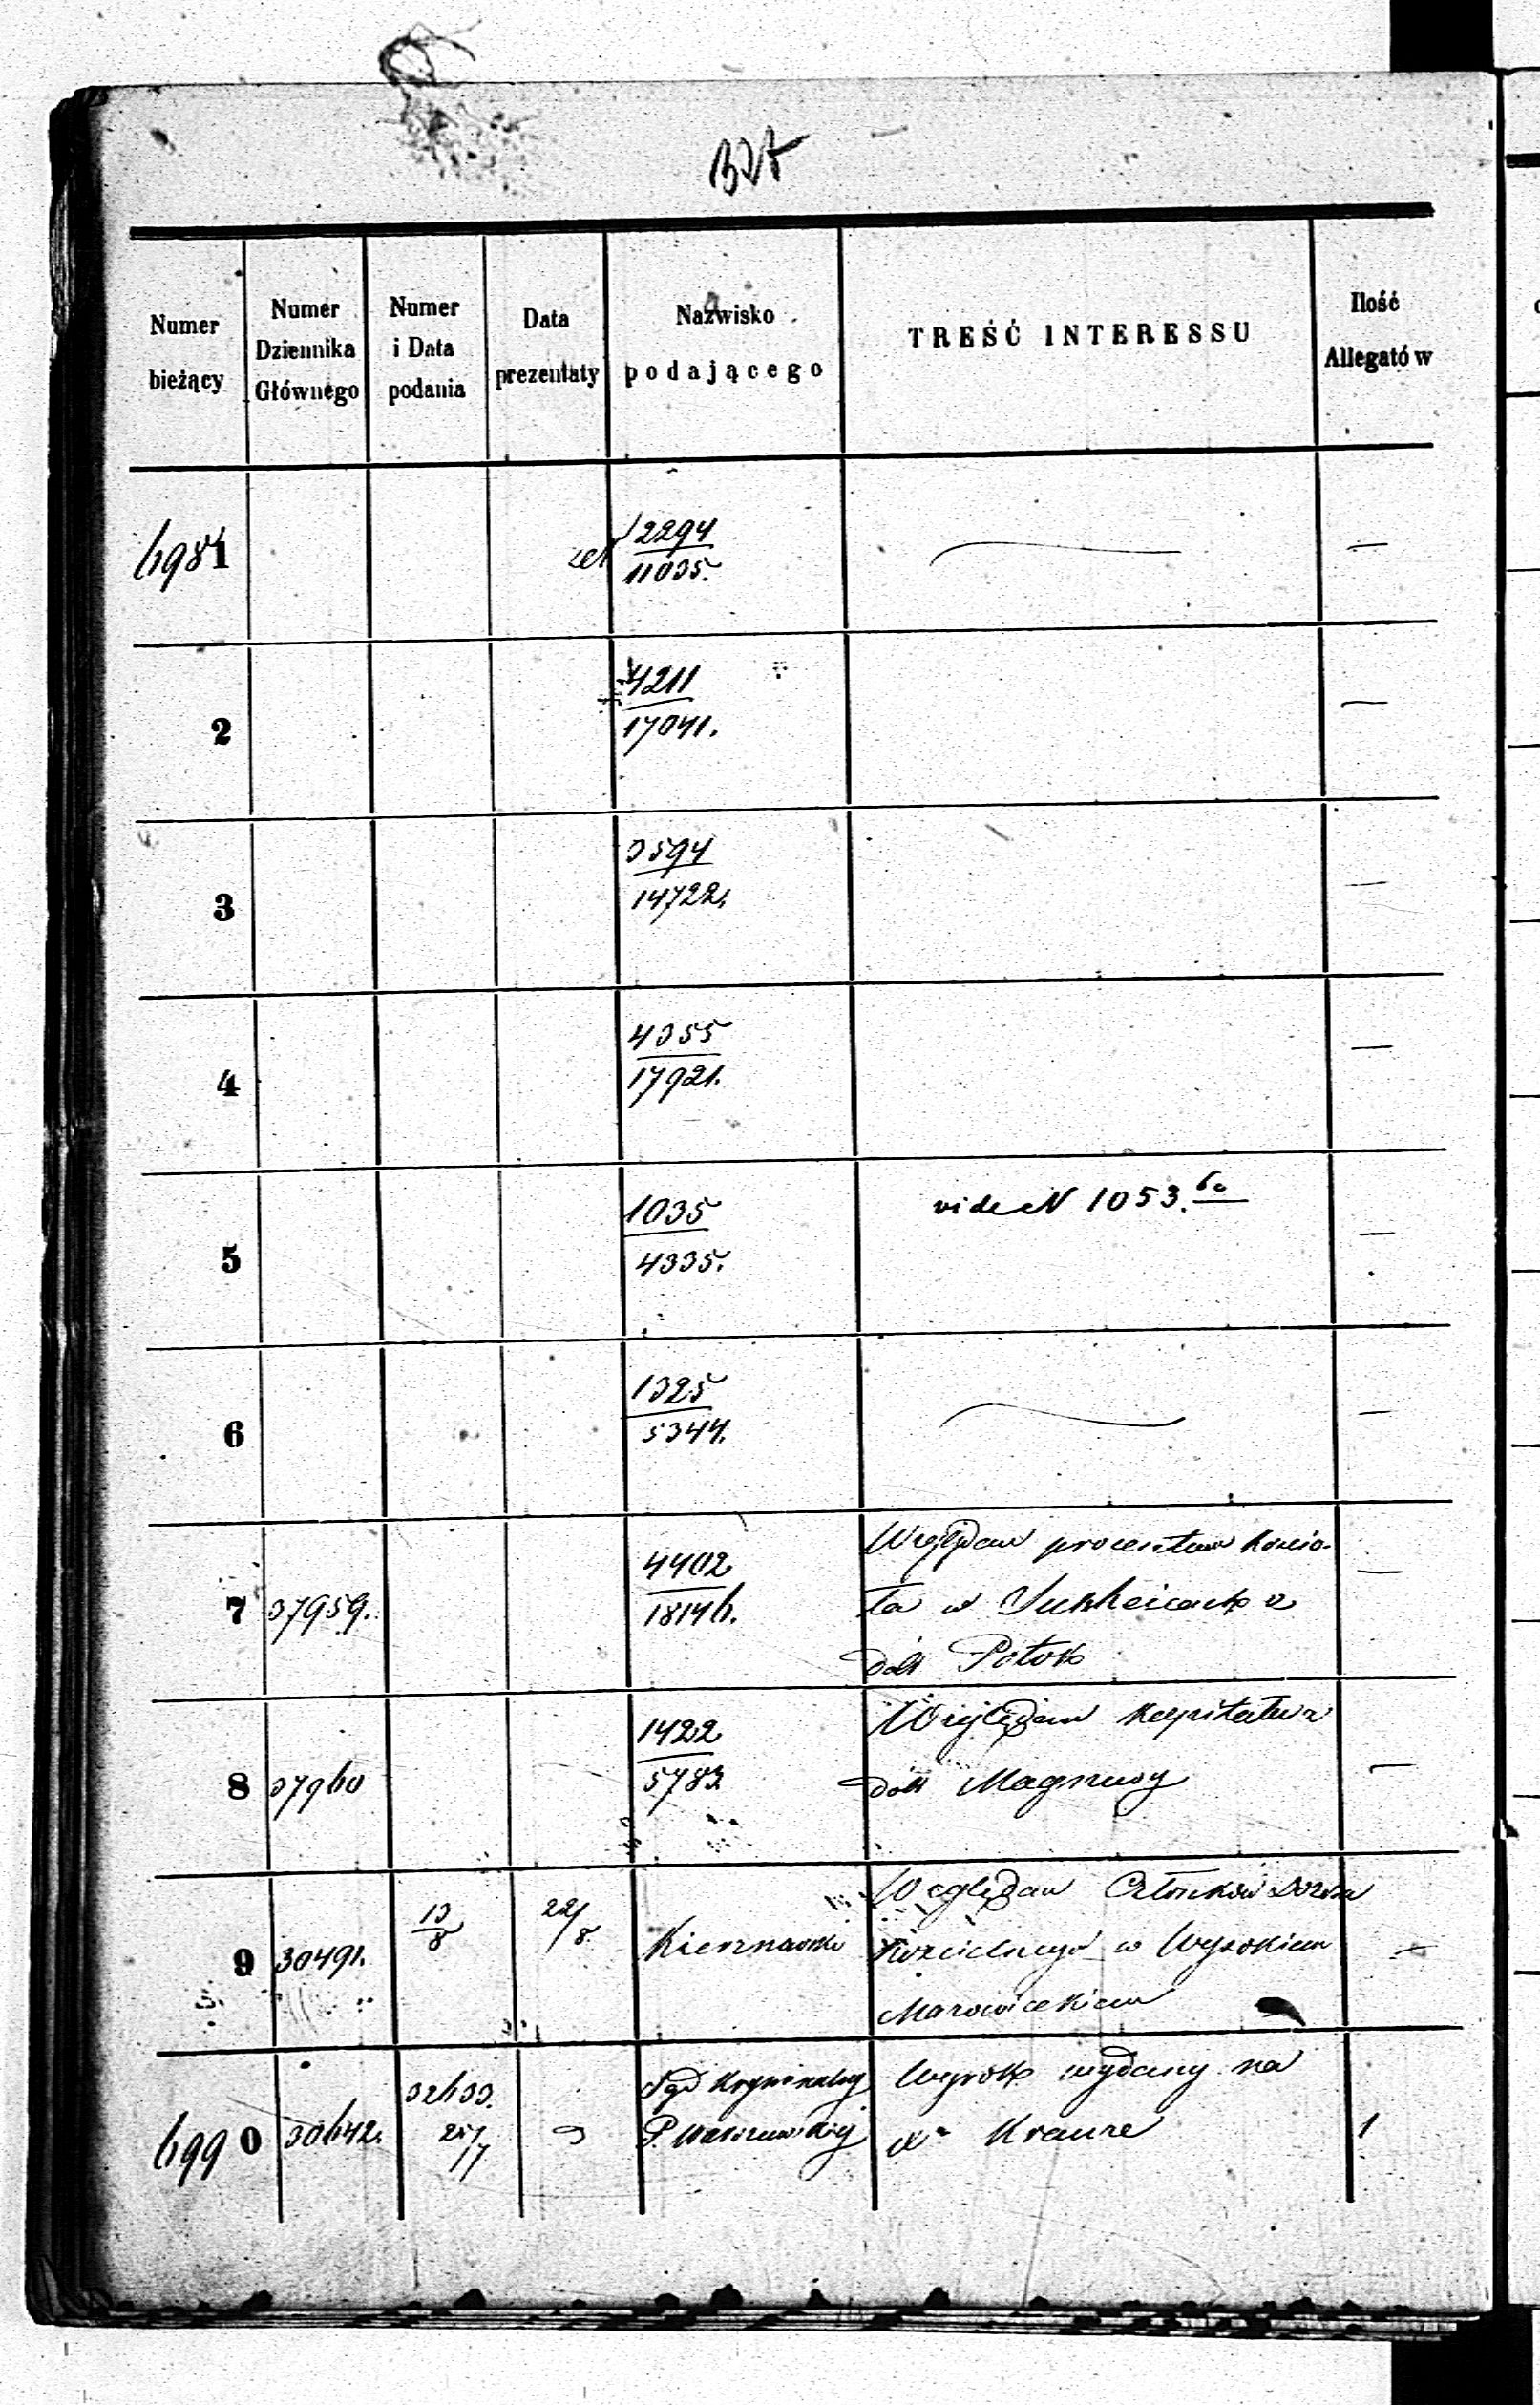 Numer bieżący
Numer Dziennika Głównego
Numer i Data podania
Data prezentaty
Nazwisko podającego
TREŚĆ INTERESSU
Ilość Allegatów
6981
12294
11035.
—
2
4211
17041.
—
3
3594
14722.
—
4
4355
17921.
—
5
1035
4335.
vide N 1053.
—
6
1325
5344.
—
7
37959.
4402
18146.
Względem procentum Kościo-
ła w
dóbr Potok
—
8
37960
1422
5783
Względem Kapitału z
dóbr Magnuszy
—
9
30491.
13/8
22/8.
Względem Członków Dozoru
Kościelnego w Wysokiem
Mazowieckiem
—
6990
30642.
32633.
25/7
Sąd Kryminalny
Wyrok wydany na
Krause
1